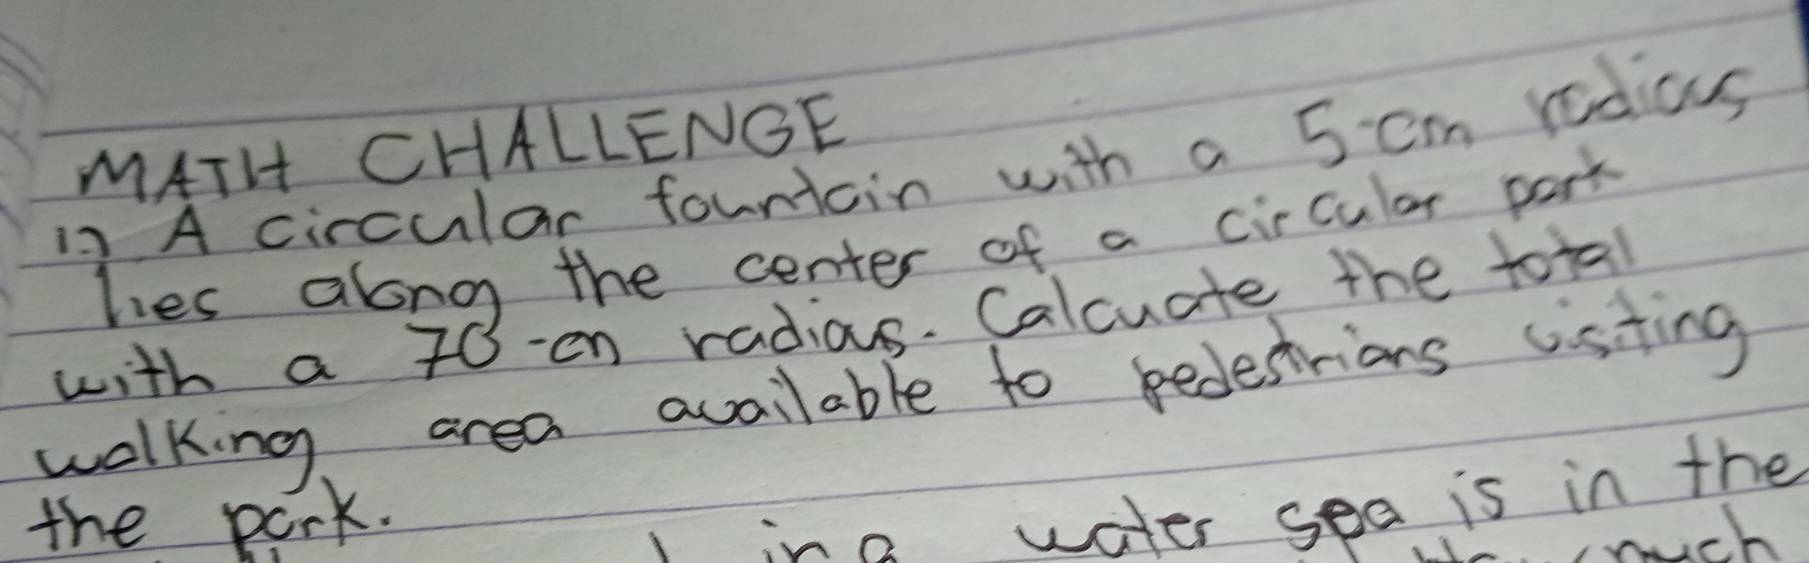 MATH CHALLENGE
1.) A circular fountain with a 5-cm radius
lies along the center of a circular park
with a 70-cm radius. Calcuate the total
walking area available to pedestrians visiting
the park.
in a water spa is in the
much